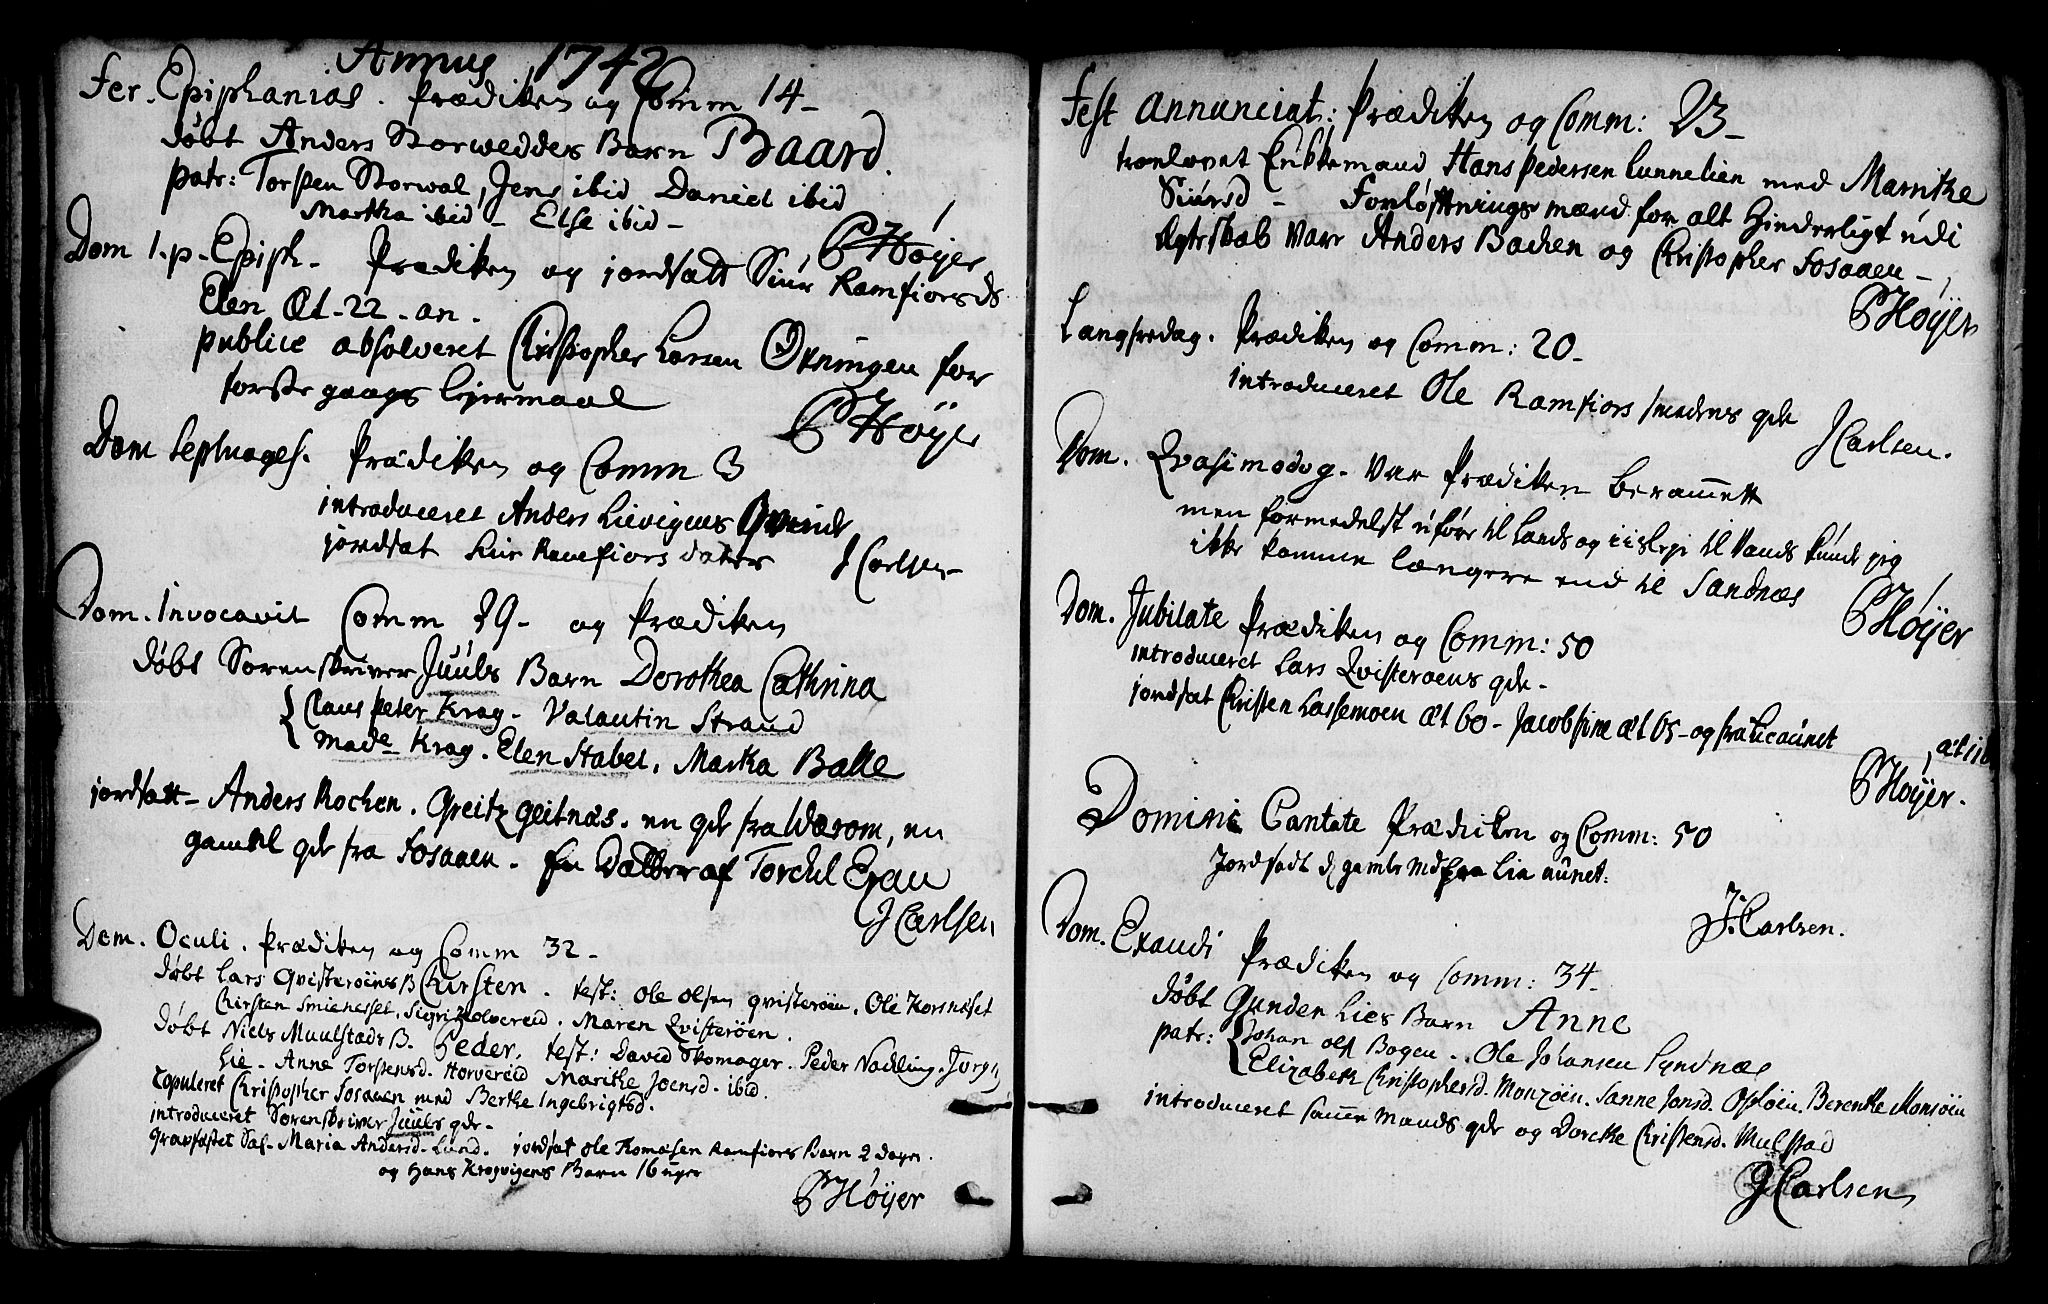 Annus 1742
Fer. Epiphanias. Prædiken og Comm 14-
døbt Anders Storweddes Barn Baard.
patr: Torsten Storwal, Jens ibid Daniel ibid
Martha ibid - Else ibid -
PHøÿer
Dom 1. p. Epiph. Prædiken og jordsatt Siur Ramfiords
Elen Æt. 22. an.
publice absolveret Christopher Larsen Øxningen for
første gangs lejermaal
PHøÿer
Dom Septuages. Prædiken og Comm 3
introduceret Anders Lievigens Qvinde
jordsat Siur Ramfiors datter
J Carlsen
Dom. Invocavit Comm 29- og Prædiken
døbt Sorenskriver Juuls Barn Dorothea Cathrina
Claus Peter Krag. Valantin Strand
Made Krag. Elen Stabel. Martha Balle
jordsatt- Anders Rochen. Greitz geitnæs. en qde fra Wærom, en
gammel qde fra Fosaaen. En Datter af Torchel Exau
J Carlsen
Dom. Oculi. Prædiken og Comm 32-
døbt Lars Qvisterøens B Chirsten. test: Ole Olsen qvisterøen. Ole Korsnæset
Chirsten Smienesset, Siegri Holvereid. Maren Qvisterøen.
døbt Niels Muulstads B. Peder. test: David Skomager. Peder Nødling. Jørgn
Lie. Anne Torstensd. Horvereid Marithe Joensd. ibid.
Copuleret Christopher Fosaaen med Berthe Ingebrigtsd.
introduceret Sorenskriver Juuls qde-
Gravfæstet Sal. Maria Andersd. Lund. jordsat Ole Thomæsen Ramfiors Barn 2 dagen.
og Hans Krogvigens Barn 16 uger
PHøÿer
Fest annunciat: Prædiken og Comm: 23-
trolovet Enkkemand Hans Pedersen Lunnelien med Marithe
Siursd - Forløftningsmænd for alt Hinderligt udi
Egteskab vare Anders Bachen og Christopher Fosaaen-
PHøÿer
Langfredag. Prædiken og Comm: 20-
introduceret Ole Ramfiors smedens qde
J Carlsen.
Dom. Qvasimodog. var Prædiken beramett
men formedelst uføre til Lands og iisleje til Vands kunde jeg
ikke komme længere end til Sandnæs
PHøÿer
Dom. Jubilate Prædiken og Comm: 50
introduceret Lars Qvisterøens qde-
jordsat Christen Lassemoen æt 60- Jacobsine æt 65- og fra Lieaunet
æt 116
PHøÿer.
Domini Cantate Prædicken og Comm: 50
Jordsadt d. gamle Md fra Lia aunet.
J. Carlsen.
Dom. Exaudi Prædiken og Comm: 34-
døbt Gunder Lies Barn Anne
patr: Johan Ols Bogen. Ole Johansen Lyndnæs
Elizabeth Christophersd. Monzøen. Sanne Jonsd. Opløen. Berenthe Monsøen
introduceret samme Mands qde og Dorthe Christensd. Mulstad
J Carlsen